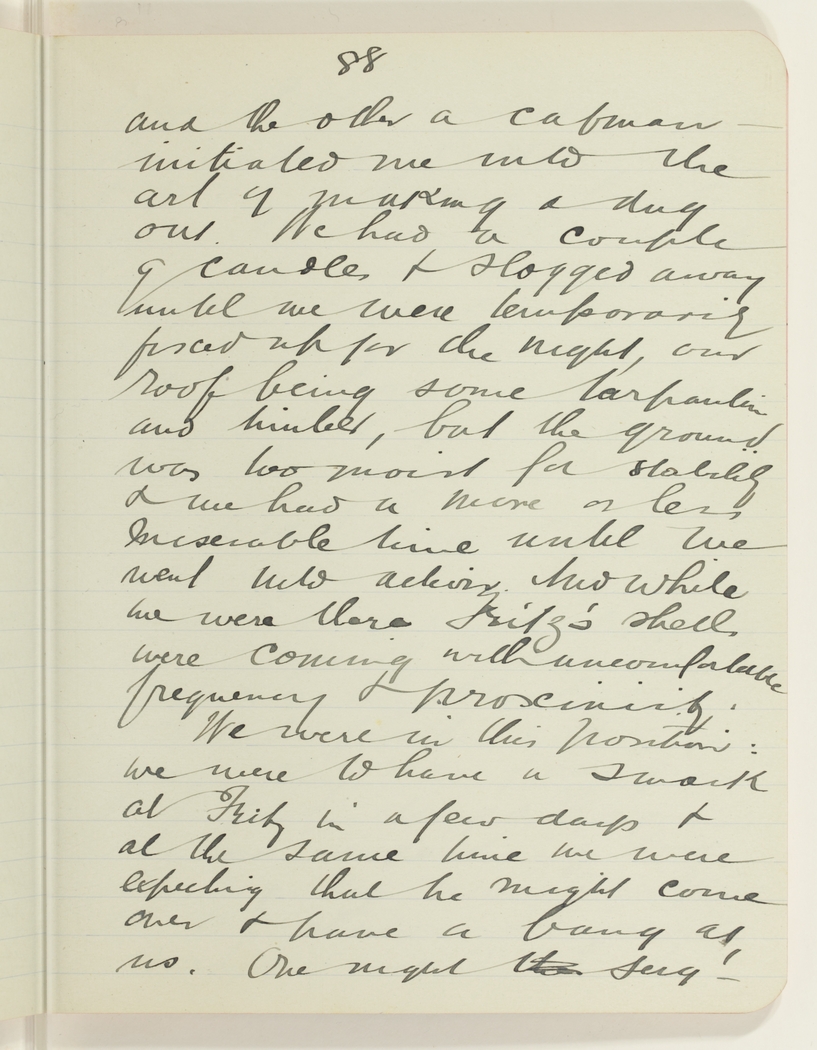 88
and the other a cabman -
initiated me into the
art of making a dug
out. We had a couple
of candles & slogged away
until we were temporarily
fixed up for the night, our
roof being some tarpaulin
and timber, but the ground
was too moist for stability
& we had a more or less
miserable time until we
went into action. And while
we were there Fritz's shells
were coming with uncomfortable
frequency & proximity.
We were in this position:
we were to have a smack
at Fritz in a few days &
at the same time we were
expecting that he might come
over & have a bang at
us. One night the Serg-